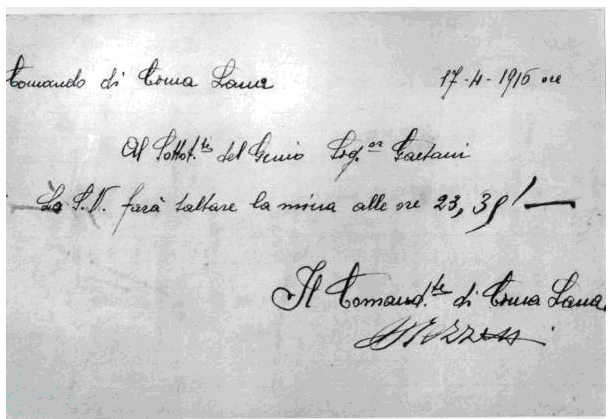 Comando di Cima Lana 17-4-1916 ore
Al Sottot.te del Genio Sig.or Gaetani
La S.V. farà saltare la mina alle ore 23,35' —
Il Comand.te di Cima Lana